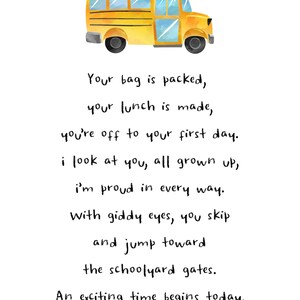 Your bag is packed,
your lunch is made,
you're off to your first day.
i look at you, all grown up,
i'm proud in every way.
With giddy eyes, you skip
and jump toward
the schoolyard gates.
An exciting time begins today,